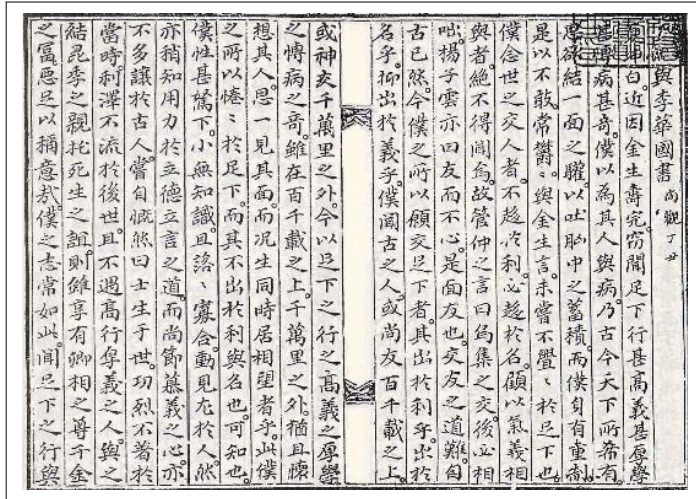 與李華國書 尚觀丁丑
白近因金生壽完竊聞足下行甚高義甚厚學
甚博病甚奇僕以為其人與病乃古今天下所希有
思欲結一面之驩以吐腦中之蓄積而僕負有重制
是以不敢常欝〻與金生言未嘗不亹〻於足下也
僕念世之交人者不趍於利必趍於名顧以氣義相
與者絶不得聞焉故管仲之言曰烏集之交後必相
咄楊子雲亦曰友而不心是面友也交友之道難自
古已然今僕之所以願交足下者其出於利乎出於
名乎抑出於義乎僕聞古之人或尚友百千載之上
或神交千萬里之外今以足下之行之高義之厚學
之愽病之奇雖在百千載之上千萬里之外猶且懷
想其人思一見其面而况生同時居相望者乎此僕
之所以惓〻於足下而其不出於利與名也可知也
僕性甚駑下小無知識且諮〻寡合動見尤於人然
亦稍知用力於立德立言之道而尚節慕義之心亦
不多讓於古人嘗自慨然曰士生于世功烈不著於
當時利澤不流於後世且不遇高行厚義之人與之
結昆季之親托死生之誼則雖享有卿相之尊千金
之富惡足以稱意哉僕之志常如此聞足下之行與